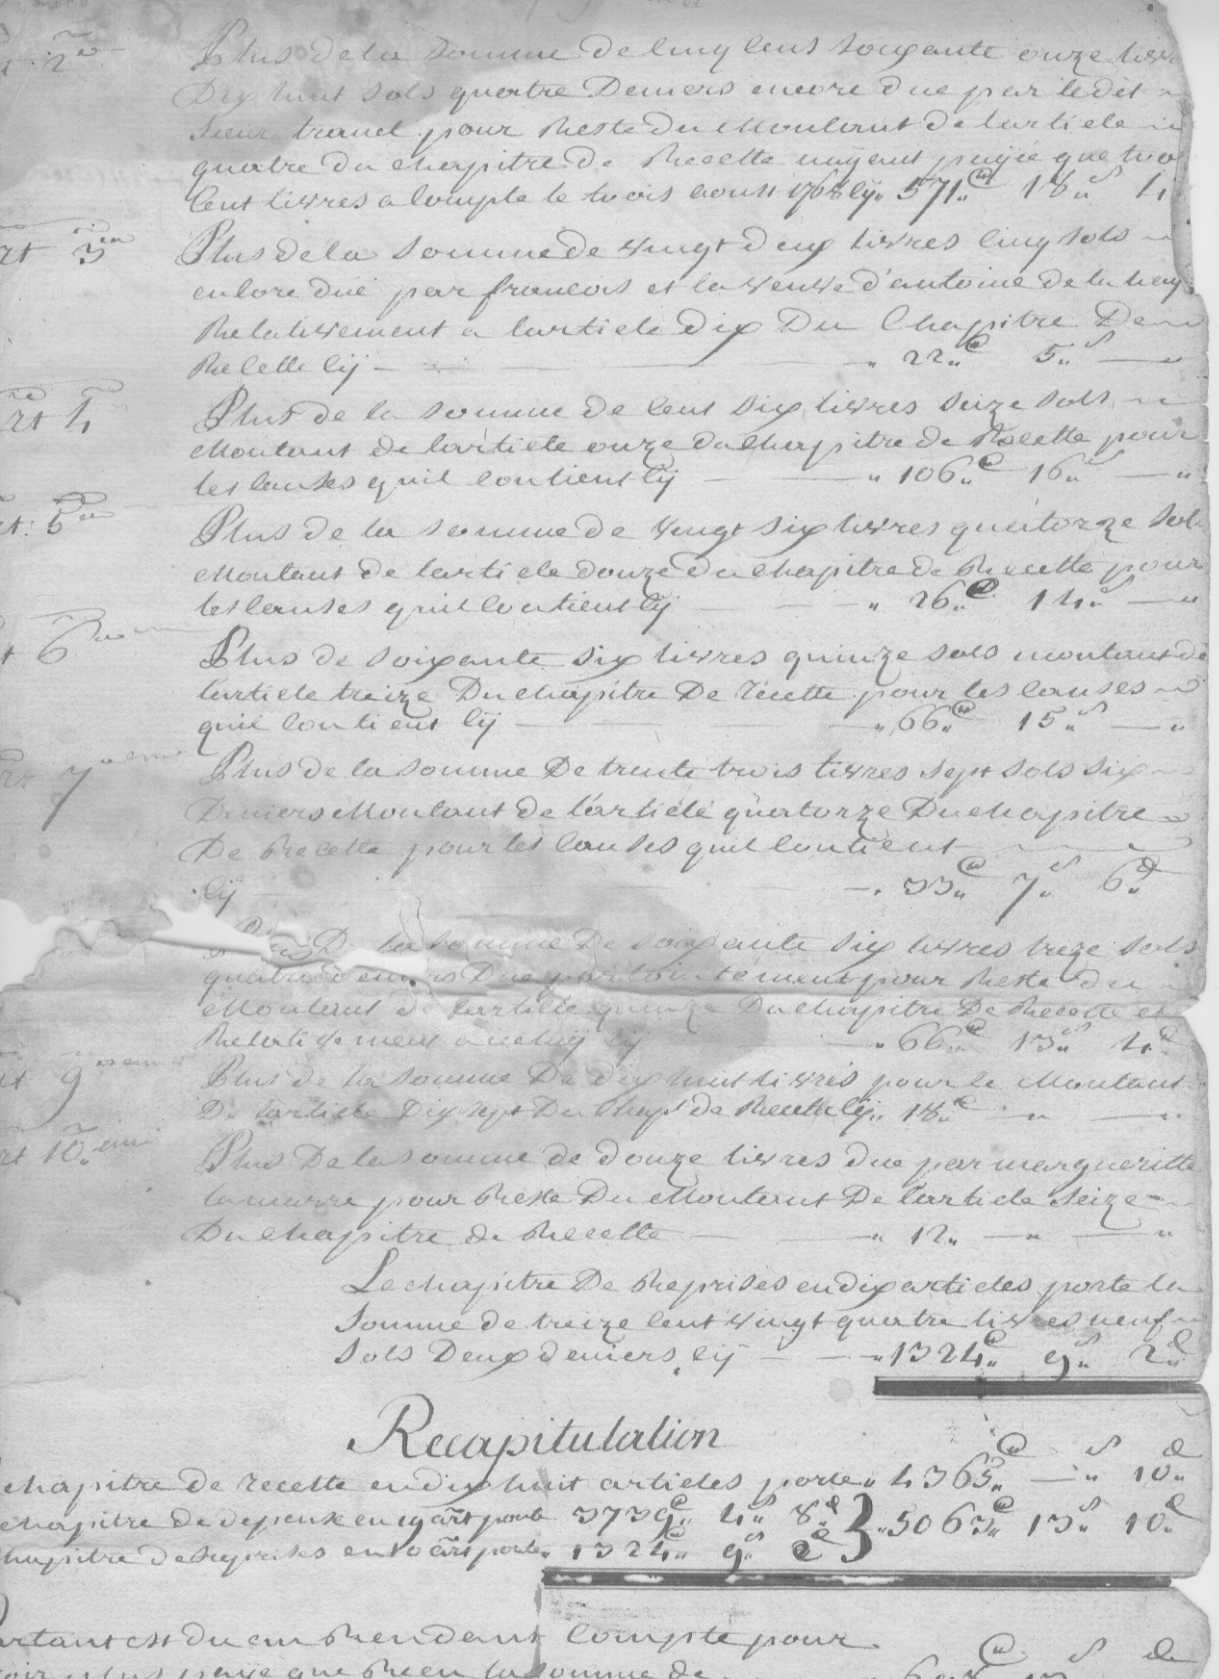 2e Plus de la somme de cinq cens soixante onze livres
Dix huit sols quatre Deniers encore due par ledit
sieur pour Reste du Montant de larticle
quatre du chapitre de Recette nayant payé que trois
Cent livres a compte le trois aoust 1768 cy 571 l 18 s 4
art 3em Plus de la somme de vingt deux livres cinq sols
encore due par francois et la veuve d'antoine
Relativement a larticle dix Du Chapitre De
Recette cy 22 l 5 s
art 4 Plus de la somme de cent six livres seize sols
Montant de larticle onze du chapitre de Recette pour
les causes quil contient cy 106 l 16 s
art: 5em Plus de la somme de vingt six livres quatorze sols
Montant de larticle douze du chapitre de Recette pour
les causes quil contient cy 26 l 14 s
6em Plus de soixante six livres quinze sols montant de
larticle treize Du chapitre De récette pour les causes
quil contient cy 66 l 15 s
art 7eme Plus de la somme De trente trois livres sept sols six
Deniers Montant de l'article quatorze Du chapitre
De Recette pour les causes quil contient
cy 33 l 7 s 6 d
De la somme De soixante six livres treze sols
quatre deniers Due par pour Reste du
Montant de larticle quinze Du chapitre De Recette et
Relativement cy 66 l 13 s 4 d
art 9eme Plus de la somme De dix huit livres pour le Montant
De larticle Dix sept Du Chapt de Recette cy 18 l
art 10.eme Plus De la somme de douze livres due par margueritte
pour Reste Du Montant De larticle seize
Du chapitre de Recette 12
Le chapitre De Reprises en dix articles porte la
somme de treize cent vingt quatre livres neuf
sols Deux deniers cy 1324 l 9 s 2 d
Recapitulation
chapitre de recette en dix huit articles porte 4365 l 10 d
chapitre de depense en 19 art porte 3739 l 4 s 8 d } 5063 l 13 s 10 d
chapitre de reprises en 10 art porte 1324 l 9 s 2 d
partant est du au Rendant compte pour
avoir plus payé que Receu la somme de